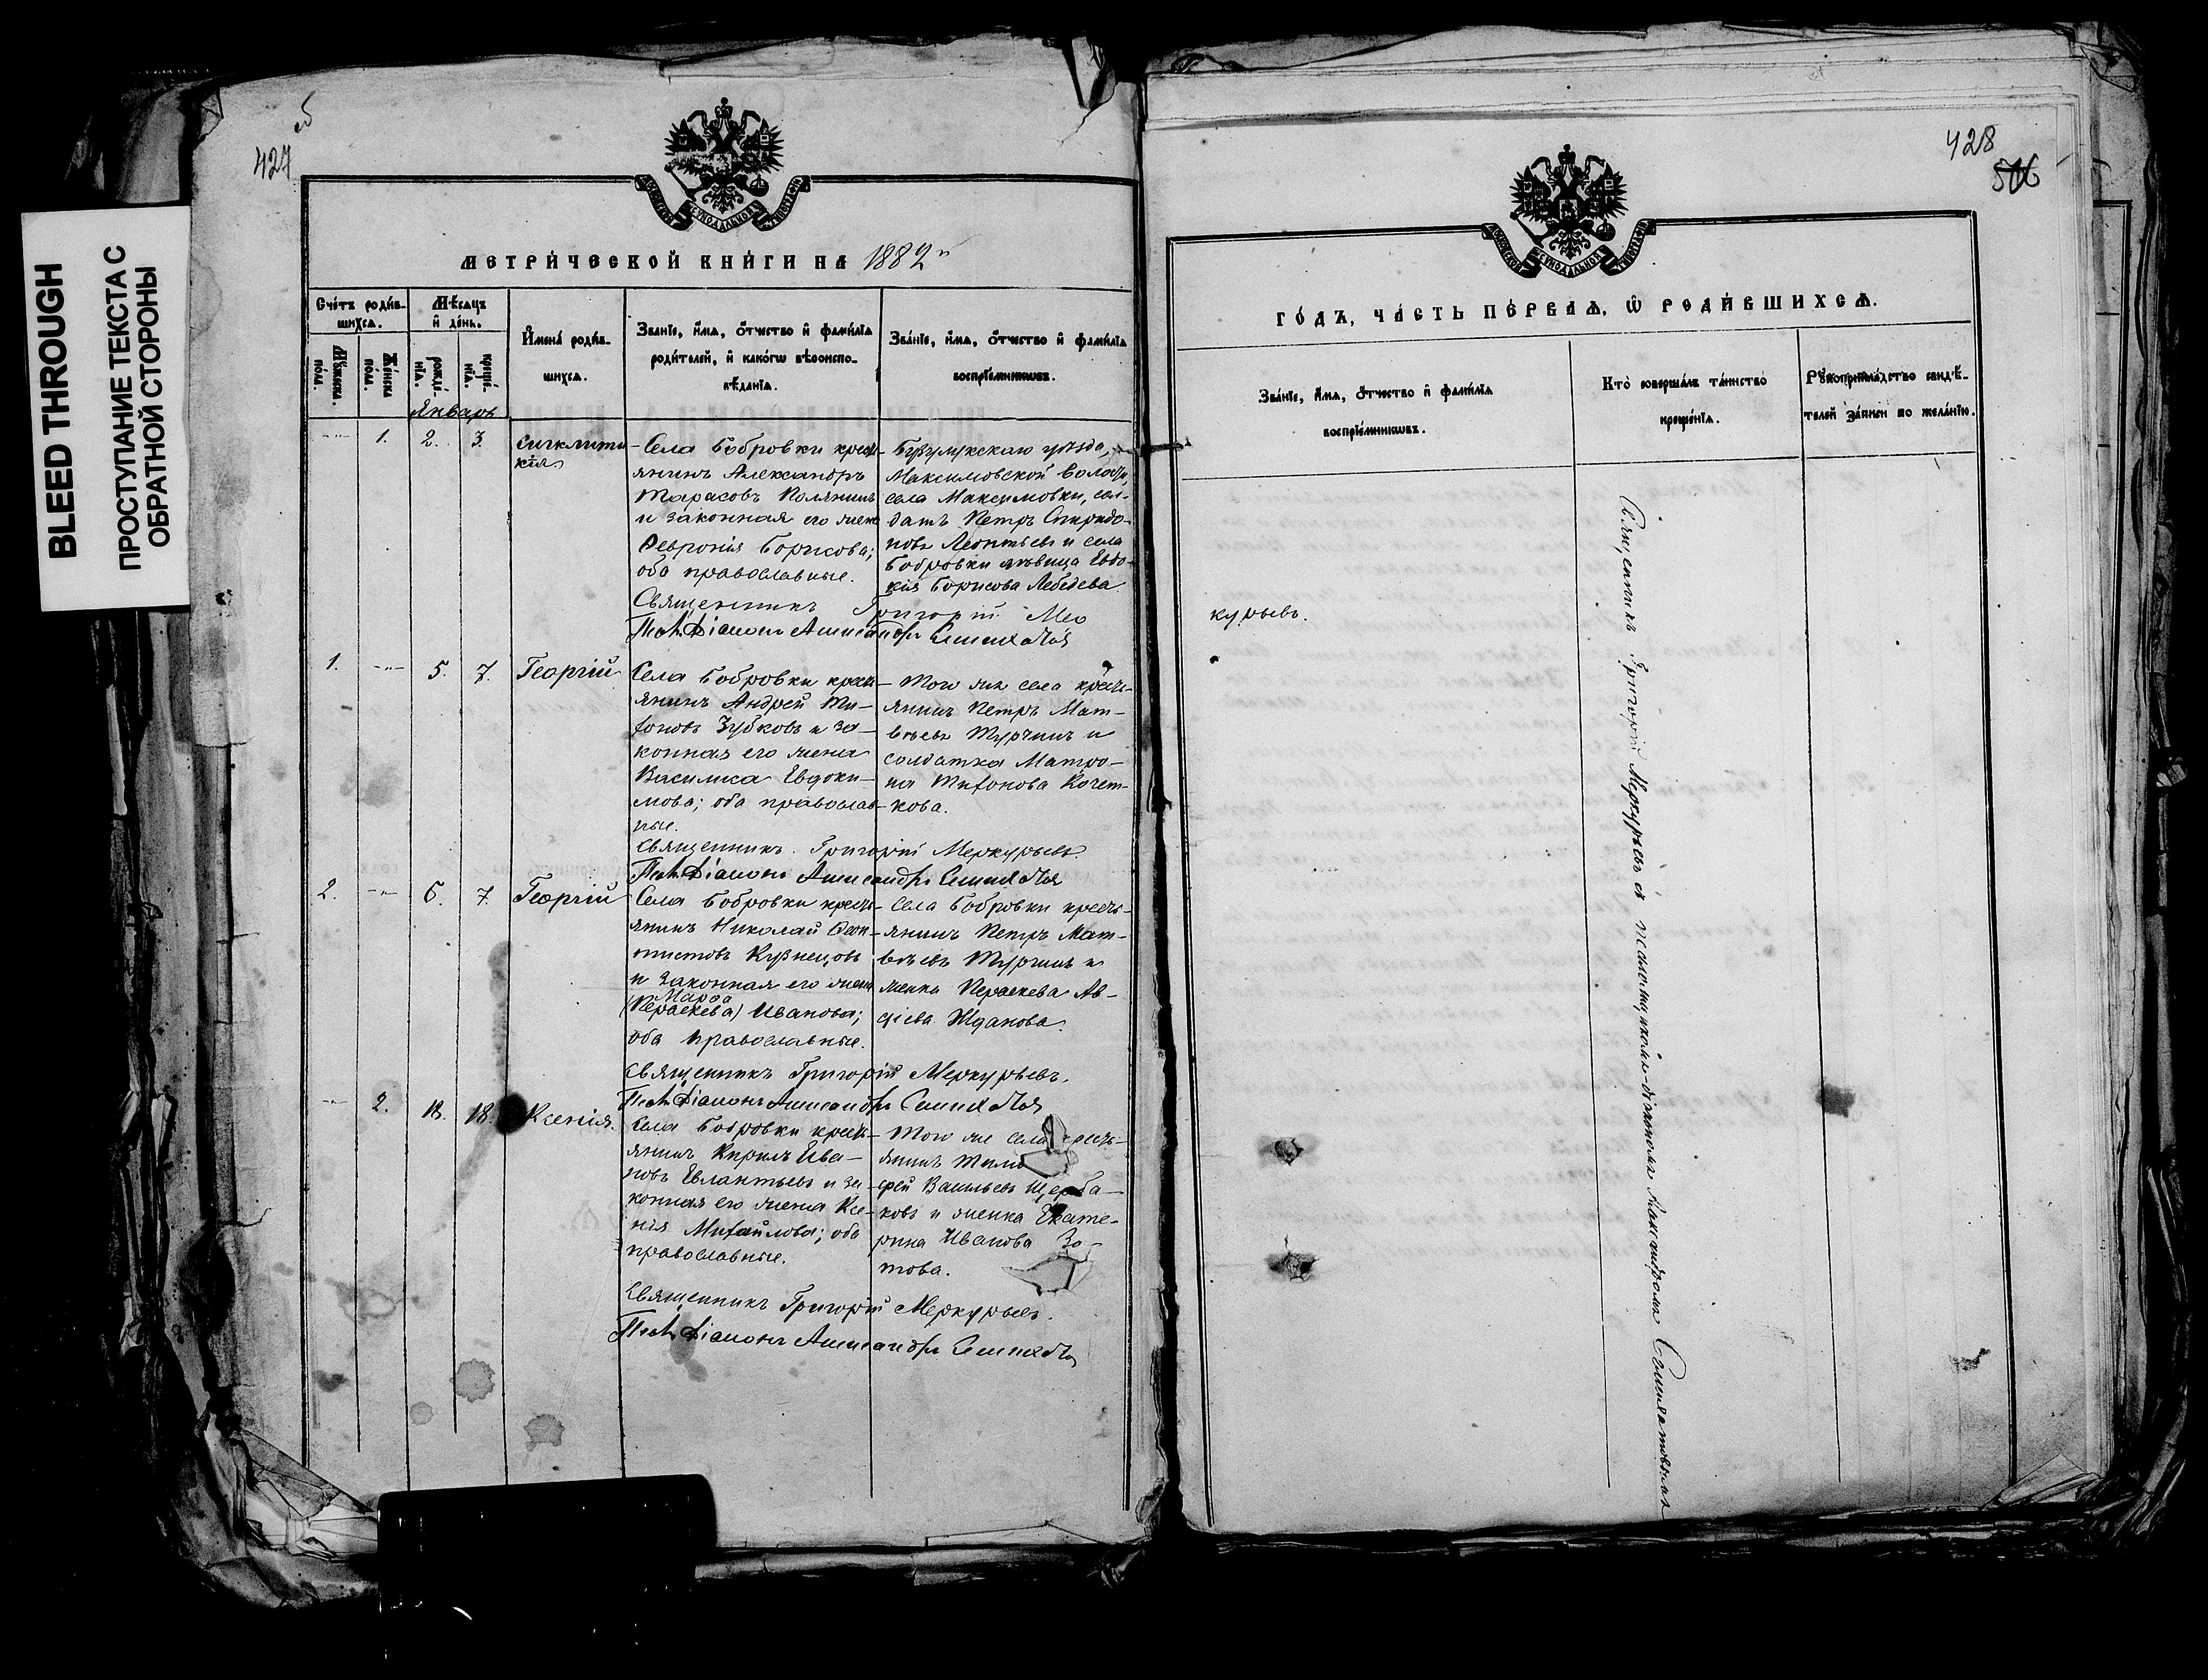 BLEED THROUGH
ПРОСТУПАНИЕ ТЕКСТА С
ОБРАТНОЙ СТОРОНЫ
427
МЕТРИЧЕСКОЙ КНИГИ НА 1882
Счетъ родив-
шихся.
Мужеска
пола.
Женска
пола.
Мѣсяцъ
и день.
рожде-
нія.
креще-
нія.
Имена родив-
шихся.
Званіе, имя, отчество и фамилія
родителей, и какогѡ вѣроиспо-
вѣданія.
Званіе, имя, отчество и фамилія
воспріемниковъ.
Январь
1. 2. 3.
Сигклити
кія
Села Бобровки кресть
янинъ Александръ
Тарасовъ Полянинъ
и законная его жена
Февронія Борисова;
оба православные.
Бузулукскаго уѣзда,
Максимовской волости,
села Максимовки, сол-
датъ Петръ Спиридо-
новъ Леонтьевъ и села
Бобровки дѣвица Евдо-
кія Борисова Лебедева
Священникъ Григорій Мер
курьевъ.
Псал. Діаконъ Александръ
1. 5. 7.
Георгій
Села Бобровки кресть
янинъ Андрей Ти-
хоновъ Зубковъ и за-
конная его жена
Василиса Евдоки-
мова; оба православ-
ные.
Того же села кресть-
янинъ Петръ Мат-
вѣевъ Турчинъ и
солдатка Матро-
на Тихонова Кочет-
кова.
Священникъ Григорій Меркурьевъ.
Псал. Діаконъ Александръ
2. 6. 7.
Георгій
Села Бобровки кресть-
янинъ Николай Феок-
тистовъ Кузнецовъ
и законная его жена
Марфа
(Параскева) Иванова;
оба православные.
Села Бобровки кресть-
янинъ Петръ Мат-
вѣевъ Турчинъ и
женка Параскева Ав-
діева Жданова.
Священникъ Григорій Меркурьевъ.
Псал. Діаконъ Александръ
2. 18. 18.
Ксенія.
Села Бобровки кресть-
янинъ Кирилъ Ива-
новъ Евлантьевъ и за-
конная его жена Ксе-
нія Михайлова; оба
православные.
Того же села кресть-
янинъ Тимо
фей Васильевъ Щерба-
ковъ и женка Екате-
рина Иванова Зо-
това.
Священникъ Григорій Меркурьевъ.
Псал. Діаконъ Александръ
428
516
ГОДЪ, ЧАСТЬ ПЕРВАЯ, Ѿ РОДИВШИХСЯ.
Званіе, имя, отчество и фамилія
воспріемниковъ.
Кто совершалъ таинство
крещенія.
Рукоприкладство свидѣ-
телей записи по желанію.
Священникъ Григорій Меркурьевъ съ псаломщикомъ-діакономъ Александромъ